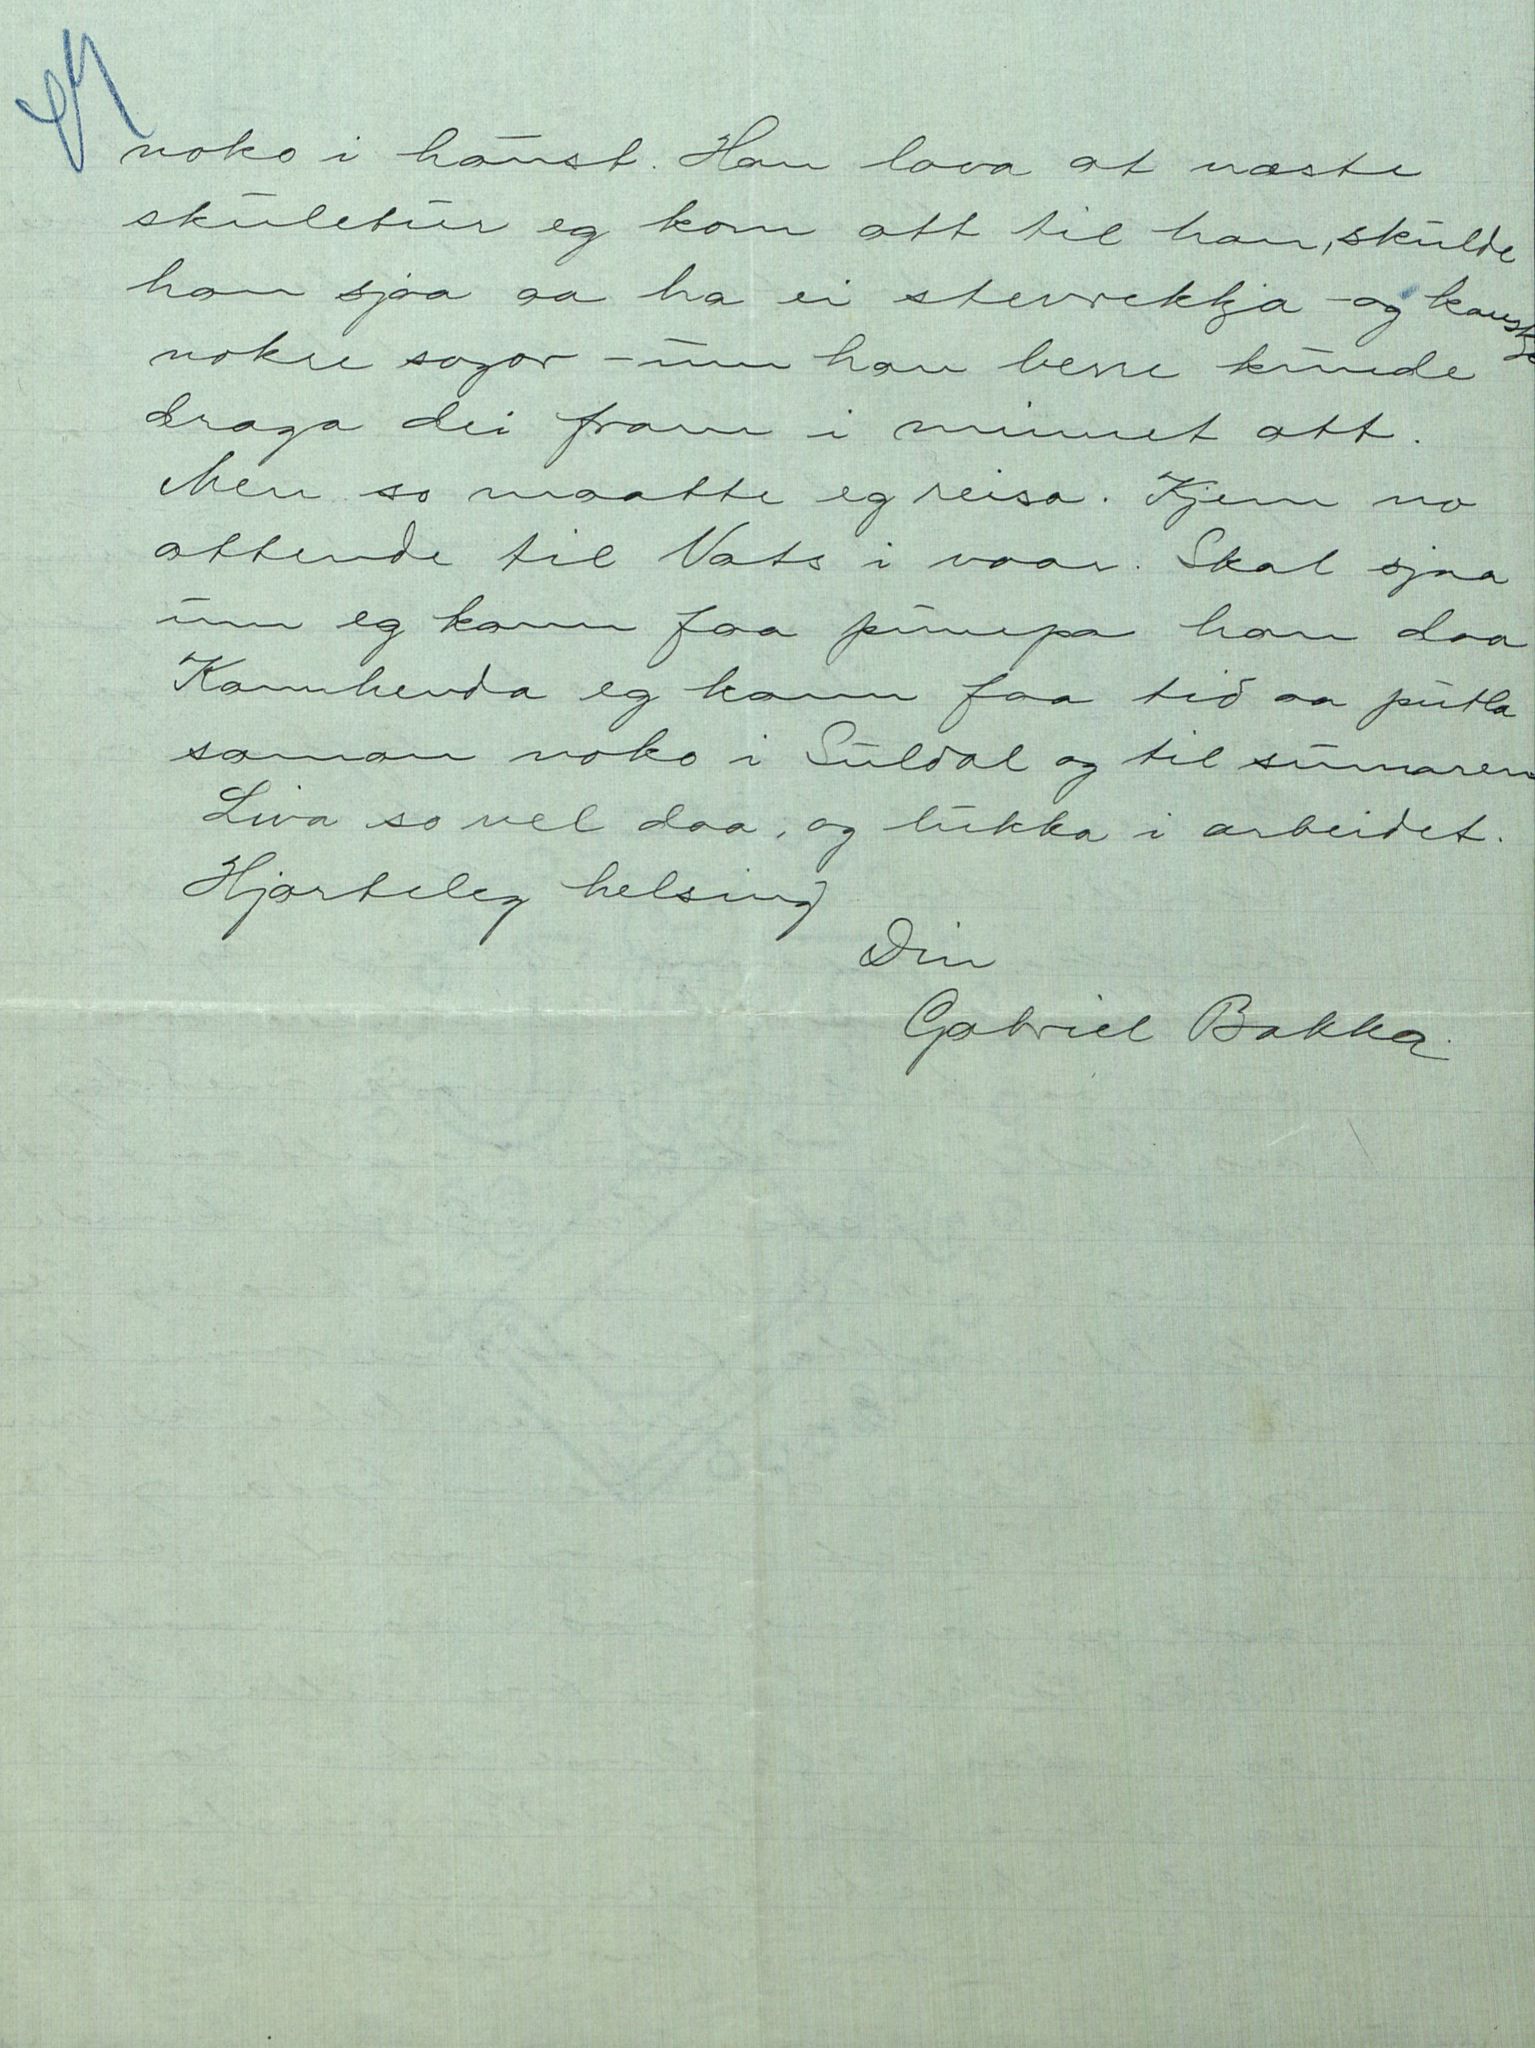 noko i haust. Han lova at næste
skuletur eg kom att til han, skulde
han sjaa aa ha ei stevrekkja - og kanskje
nokre sogor - um han berre kunde
draga dei fram i minnet att.
Men so maatte eg reisa. Kjem no
attende til Vats i vaar. Skal sjaa
um eg kann faa pumpa han daa
Kannhenda eg kann faa tid aa putla
saman noko i Suldal og til sumaren
Liva so vel daa, og lukka i arbeidet.
Hjarteleg helsing
Din
Gabriel Bakka.